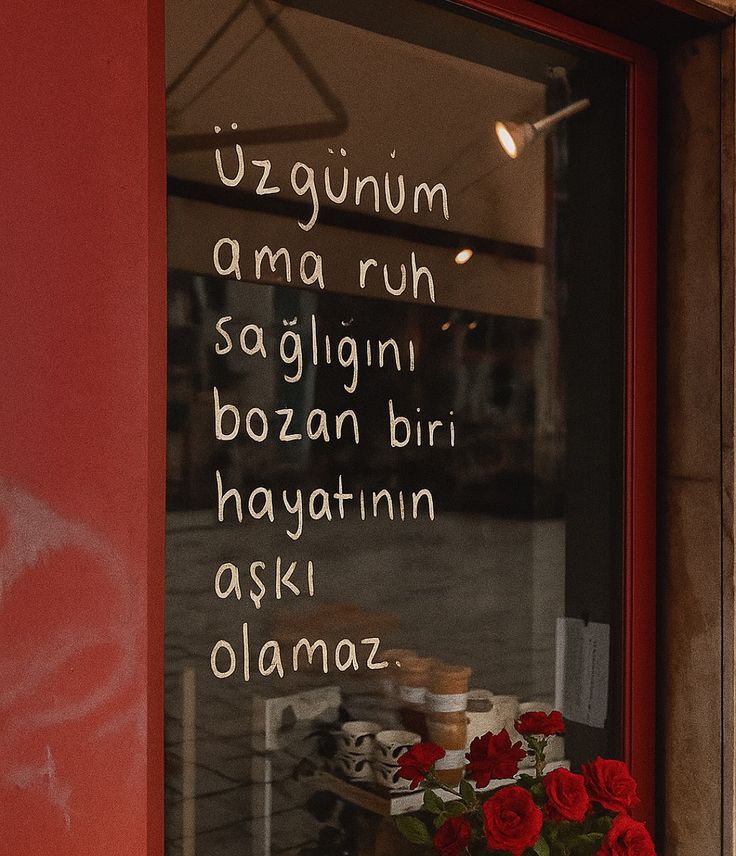 üzgünüm
ama ruh
sağlığını
bozan biri
hayatının
aşkı
olamaz.